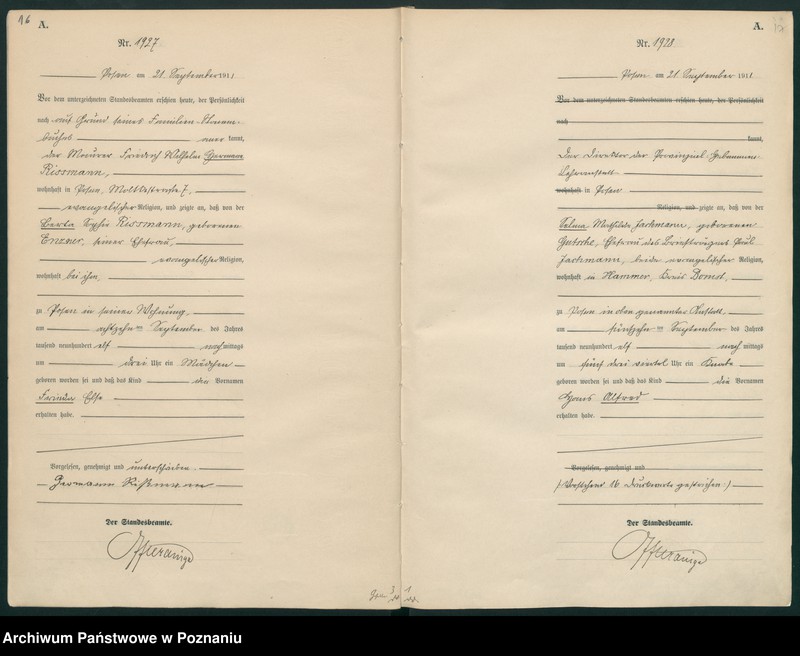 16
A.
Nr. 1927
Posen am 21. September 1911
Vor dem unterzeichneten Standesbeamten erschien heute, der Persönlichkeit
nach auf Grund seines Familien-Stamm-
buches anerkannt,
der Maurer Friedrich Wilhelm Hermann
Rissmann,
wohnhaft in Posen, Moltkestraße 7,
evangelischer Religion, und zeigte an, daß von der
Berta Sophie Rissmann, geborenen
Enzner, seiner Ehefrau,
evangelischer Religion,
wohnhaft bei ihm,
zu Posen in seiner Wohnung,
am achtzehnten September des Jahres
tausend neunhundert elf nachmittags
um drei Uhr ein Mädchen
geboren worden sei und daß das Kind die Vornamen
Frieda Else
erhalten habe.
Vorgelesen, genehmigt und unterschrieben
Hermann Rißmann
Der Standesbeamte.
A.
Nr. 1928
Posen am 21. September 1911
Vor dem unterzeichneten Standesbeamten erschien heute, der Persönlichkeit
nach
kannt,
Der Direktor der Provinzial-Hebammen-
Lehranstalt
wohnhaft in Posen
Religion, und zeigte an, daß von der
Selma Mathilde Jachmann, geborenen
Gutsche, Ehefrau des Briefträgers Paul
Jachmann, beide evangelischer Religion,
wohnhaft in Hammer, Kreis Bomst,
zu Posen in oben genannter Anstalt,
am fünfzehnten September des Jahres
tausend neunhundert elf nachmittags
um fünf drei viertel Uhr ein Knabe
geboren worden sei und daß das Kind die Vornamen
Hans Alfred
erhalten habe.
Vorgelesen, genehmigt und
(Vorstehend 16 Druckworte gestrichen.)
Der Standesbeamte.
Archiwum Państwowe w Poznaniu